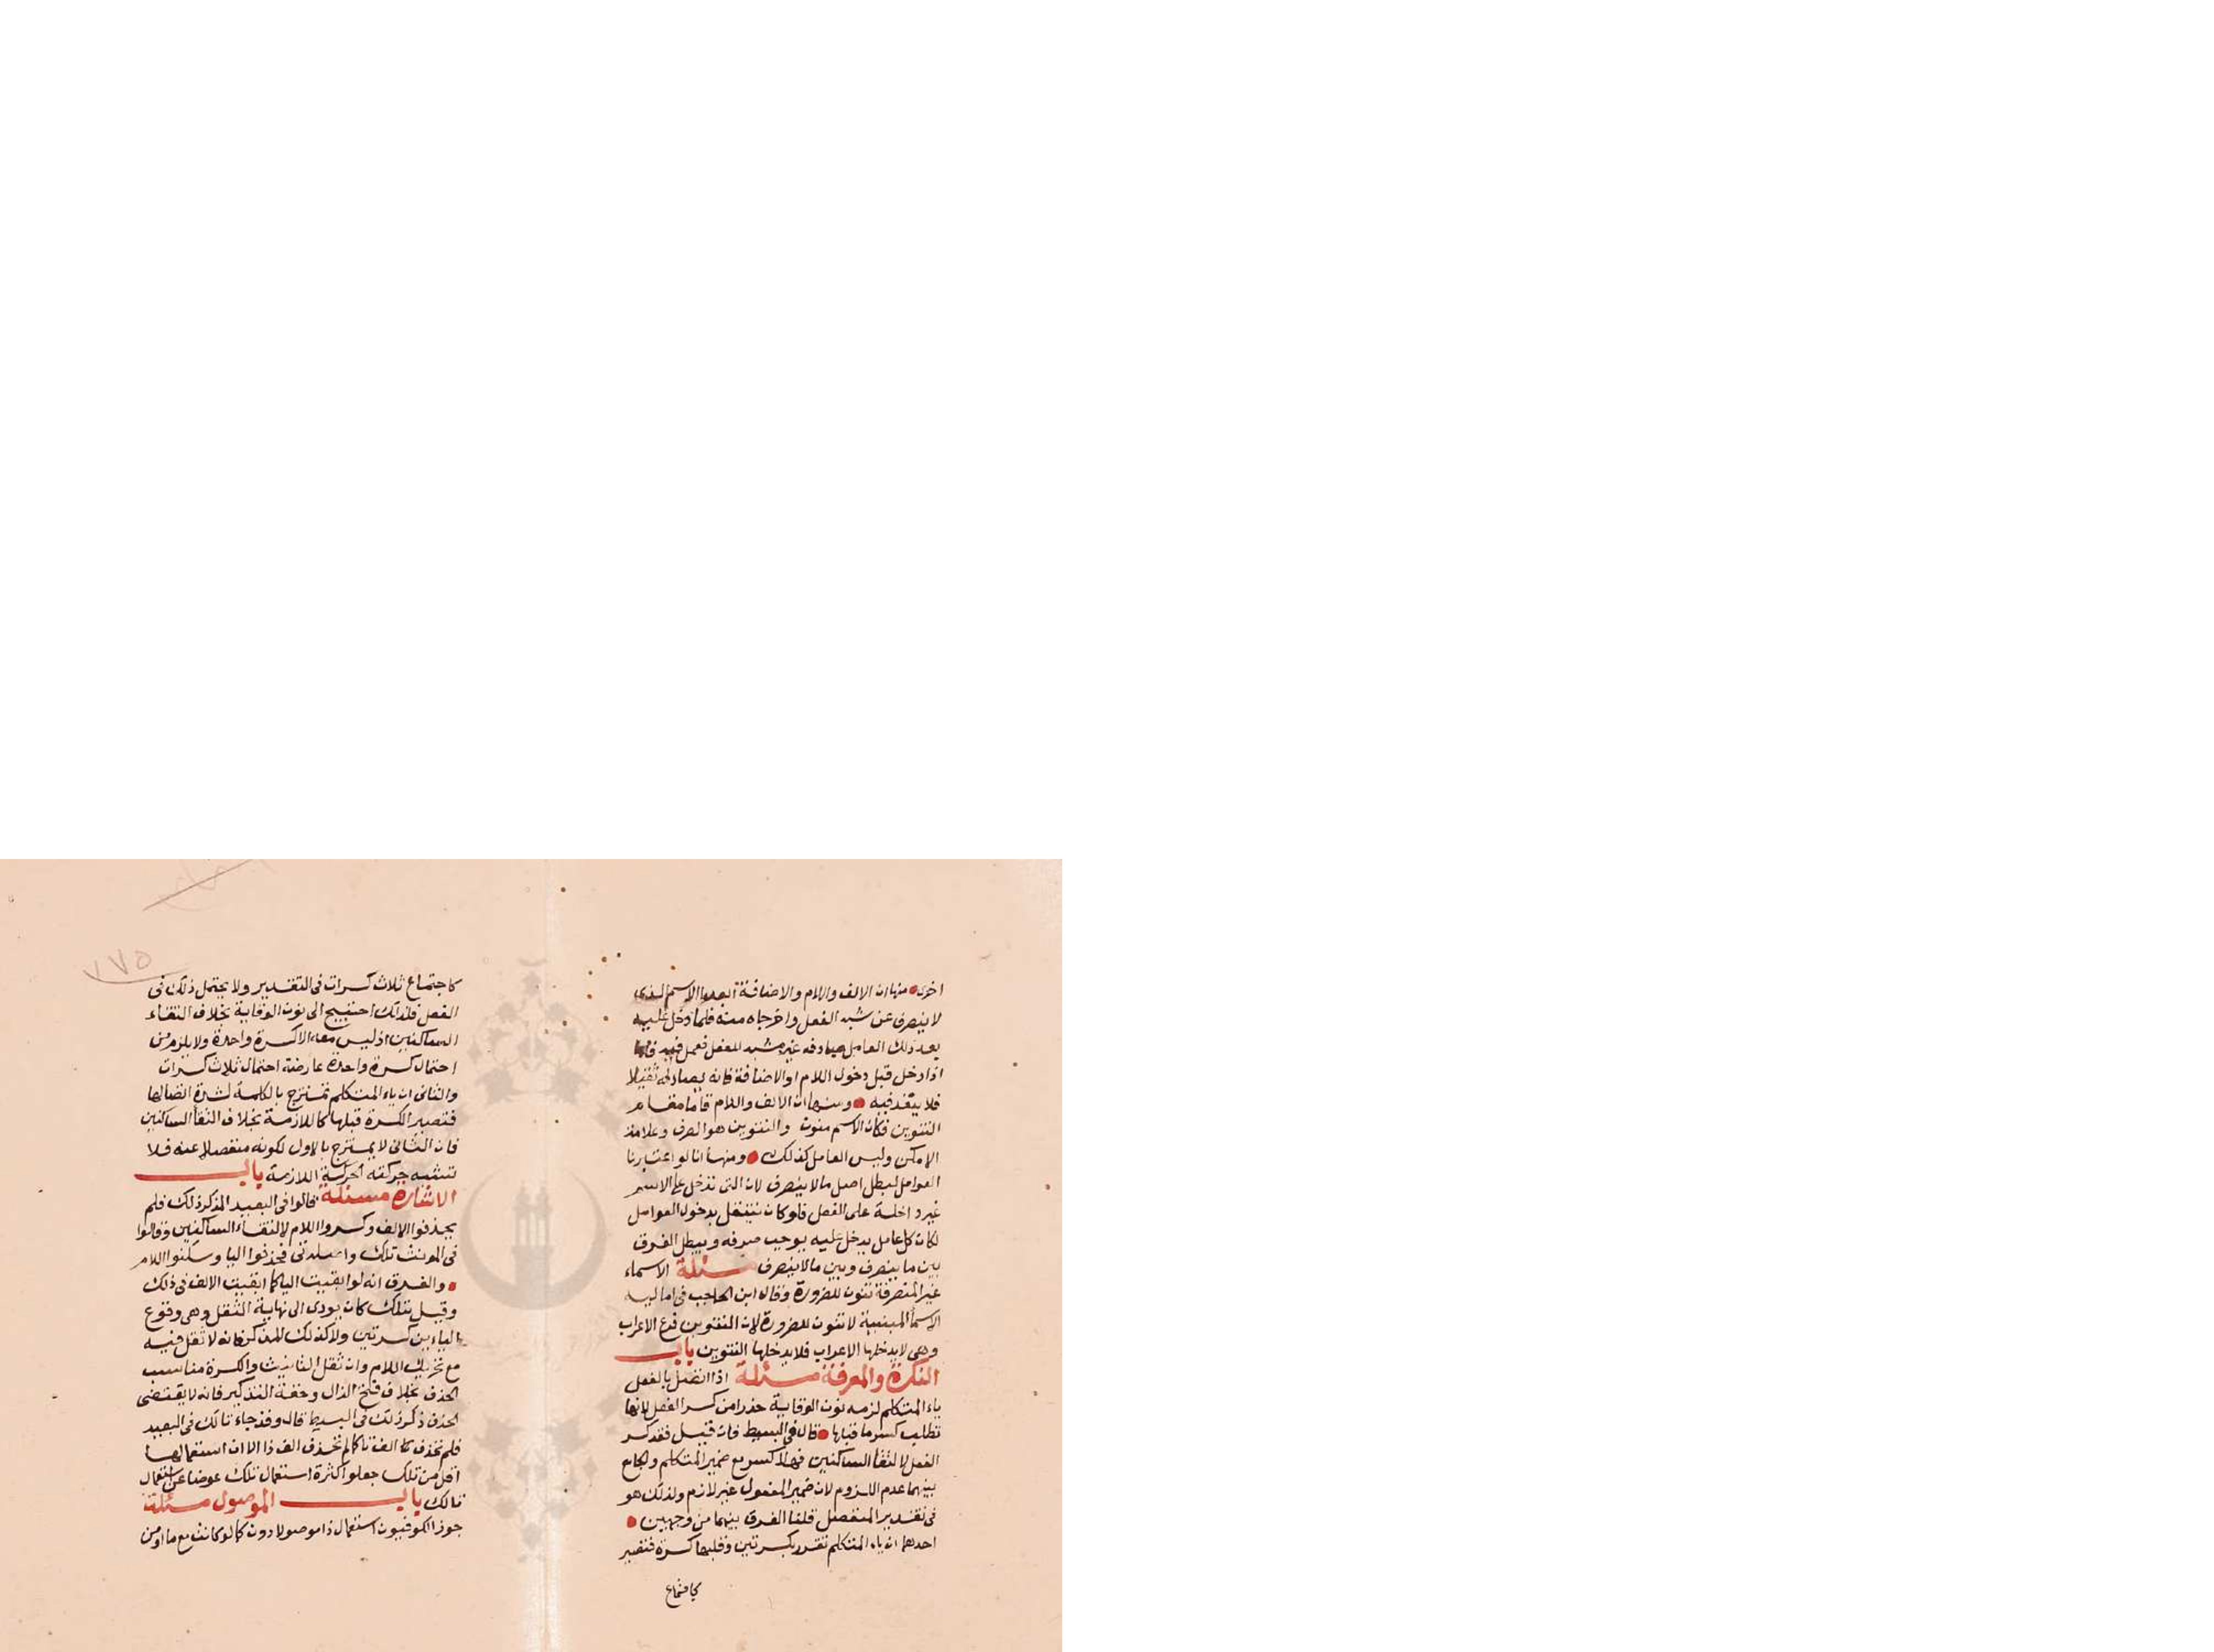 اخرى منها ان الالف واللام والاضافة ابعدا الاسم الذى
لا ينصرف عن شبه الفعل واخرجاه منه فلما دخل عليه
بعد ذلك العامل صادفه غير مشبه للفعل فعمل فيه فاما
اذا دخل قبل دخول اللام او الاضافة فانه يصادفه ثقيلا
فلا ينفذ فيه ومنها ان الالف واللام قاما مقام
التنوين فكان الاسم منون والتنوين هو الصرف وعلامة
الامكن وليس العامل كذلك ومنها انا لو اعتبرنا
العوامل لبطل اصل مالا ينصرف لان التى تدخل على الاسم
غير داخلة على الفعل فلو كان ينتقل بدخول العوامل
لكان كل عامل يدخل عليه يوجب صرفه ويبطل الفرق
بين ما ينصرف وبين مالا ينصرف مسئلة الاسماء
غير المنصرفة تنون للضرورة وقال ابن الحاجب فى اماليه
الاسما المبنية لا تنون للضرورة لان التنوين فرع الاعراب
وهى لا يدخلها الاعراب فلا يدخلها التنوين باب
النكرة والمعرفة مسئلة اذا اتصل بالفعل
ياء المتكلم لزمه نون الوقاية حذرا من كسر الفعل لانها
تطلب كسر ما قبلها قال فى البسيط فان قيل فقد كسر
الفعل لالتقا الساكنين فهلا كسر مع ضمير المتكلم والجامع
بينهما عدم اللزوم لان ضمير المفعول غير لازم ولذلك هو
فى تقدير المنفصل قلنا الفرق بينهما من وجهين
احدهما ان ياء المتكلم تقدر بكسرتين وقبلها كسرة فتصير
كاجتماع
٢٧٥
كاجتماع ثلاث كسرات فى التقدير ولا يحتمل ذلك فى
الفعل فلذلك احتيج الى نون الوقاية بخلاف التقاء
الساكنين اذ ليس معه الا كسرة واحدة ولا يلزم من
احتمال كسرة واحدة عارضة احتمال ثلاث كسرات
والثانى ان ياء المتكلم تمتزج بالكلمة لشدة اتصالها
فتصير الكسرة قبلها كاللازمة بخلاف التقا الساكنين
فان الثانى لا يمتزج بالاول لكونه منفصلا عنه فلا
تشبه حركته الحركة اللازمة باب
الاشارة مسئلة قالوا فى البعيد المذكر ذلك فلم
يحذفوا الالف وكسروا اللام لالتقاء الساكنين وقالوا
فى المونث تلك واصله تى فحذفوا اليا وسكنوا اللام
والفرق انه لو ابقيت اليا كما ابقيت الالف فى ذلك
وقيل تيلك كان يودى الى نهاية الثقل وهى وقوع
الياء بين كسرتين ولا كذلك المذكر فانه لا ثقل فيه
مع تحريك اللام وان ثقل التانيث والكسرة مناسب
الحذف بخلاف فتح الذال وخفة التذكير فانه لا يقتضى
الحذف ذكر ذلك فى البسيط قال وقد جاء تالك فى البعيد
فلم تحذف الف تا كما لم تحذف الف ذا الا ان استعمالها
اقل من تلك جعلوا كثرة استعمال تلك عوضا عن استعمال
تالك باب الموصول مسئلة
جوز الكوفيون استعمال ذا موصولا دون كما لو كانت مع ما او من